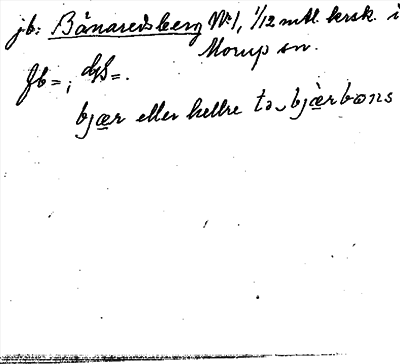 jb: Bånaredsberg Nr 1, 1/12 mtl. krsk. i
Morup sn.
Jb =; dgS =.
bjær eller hellre to bjærbons